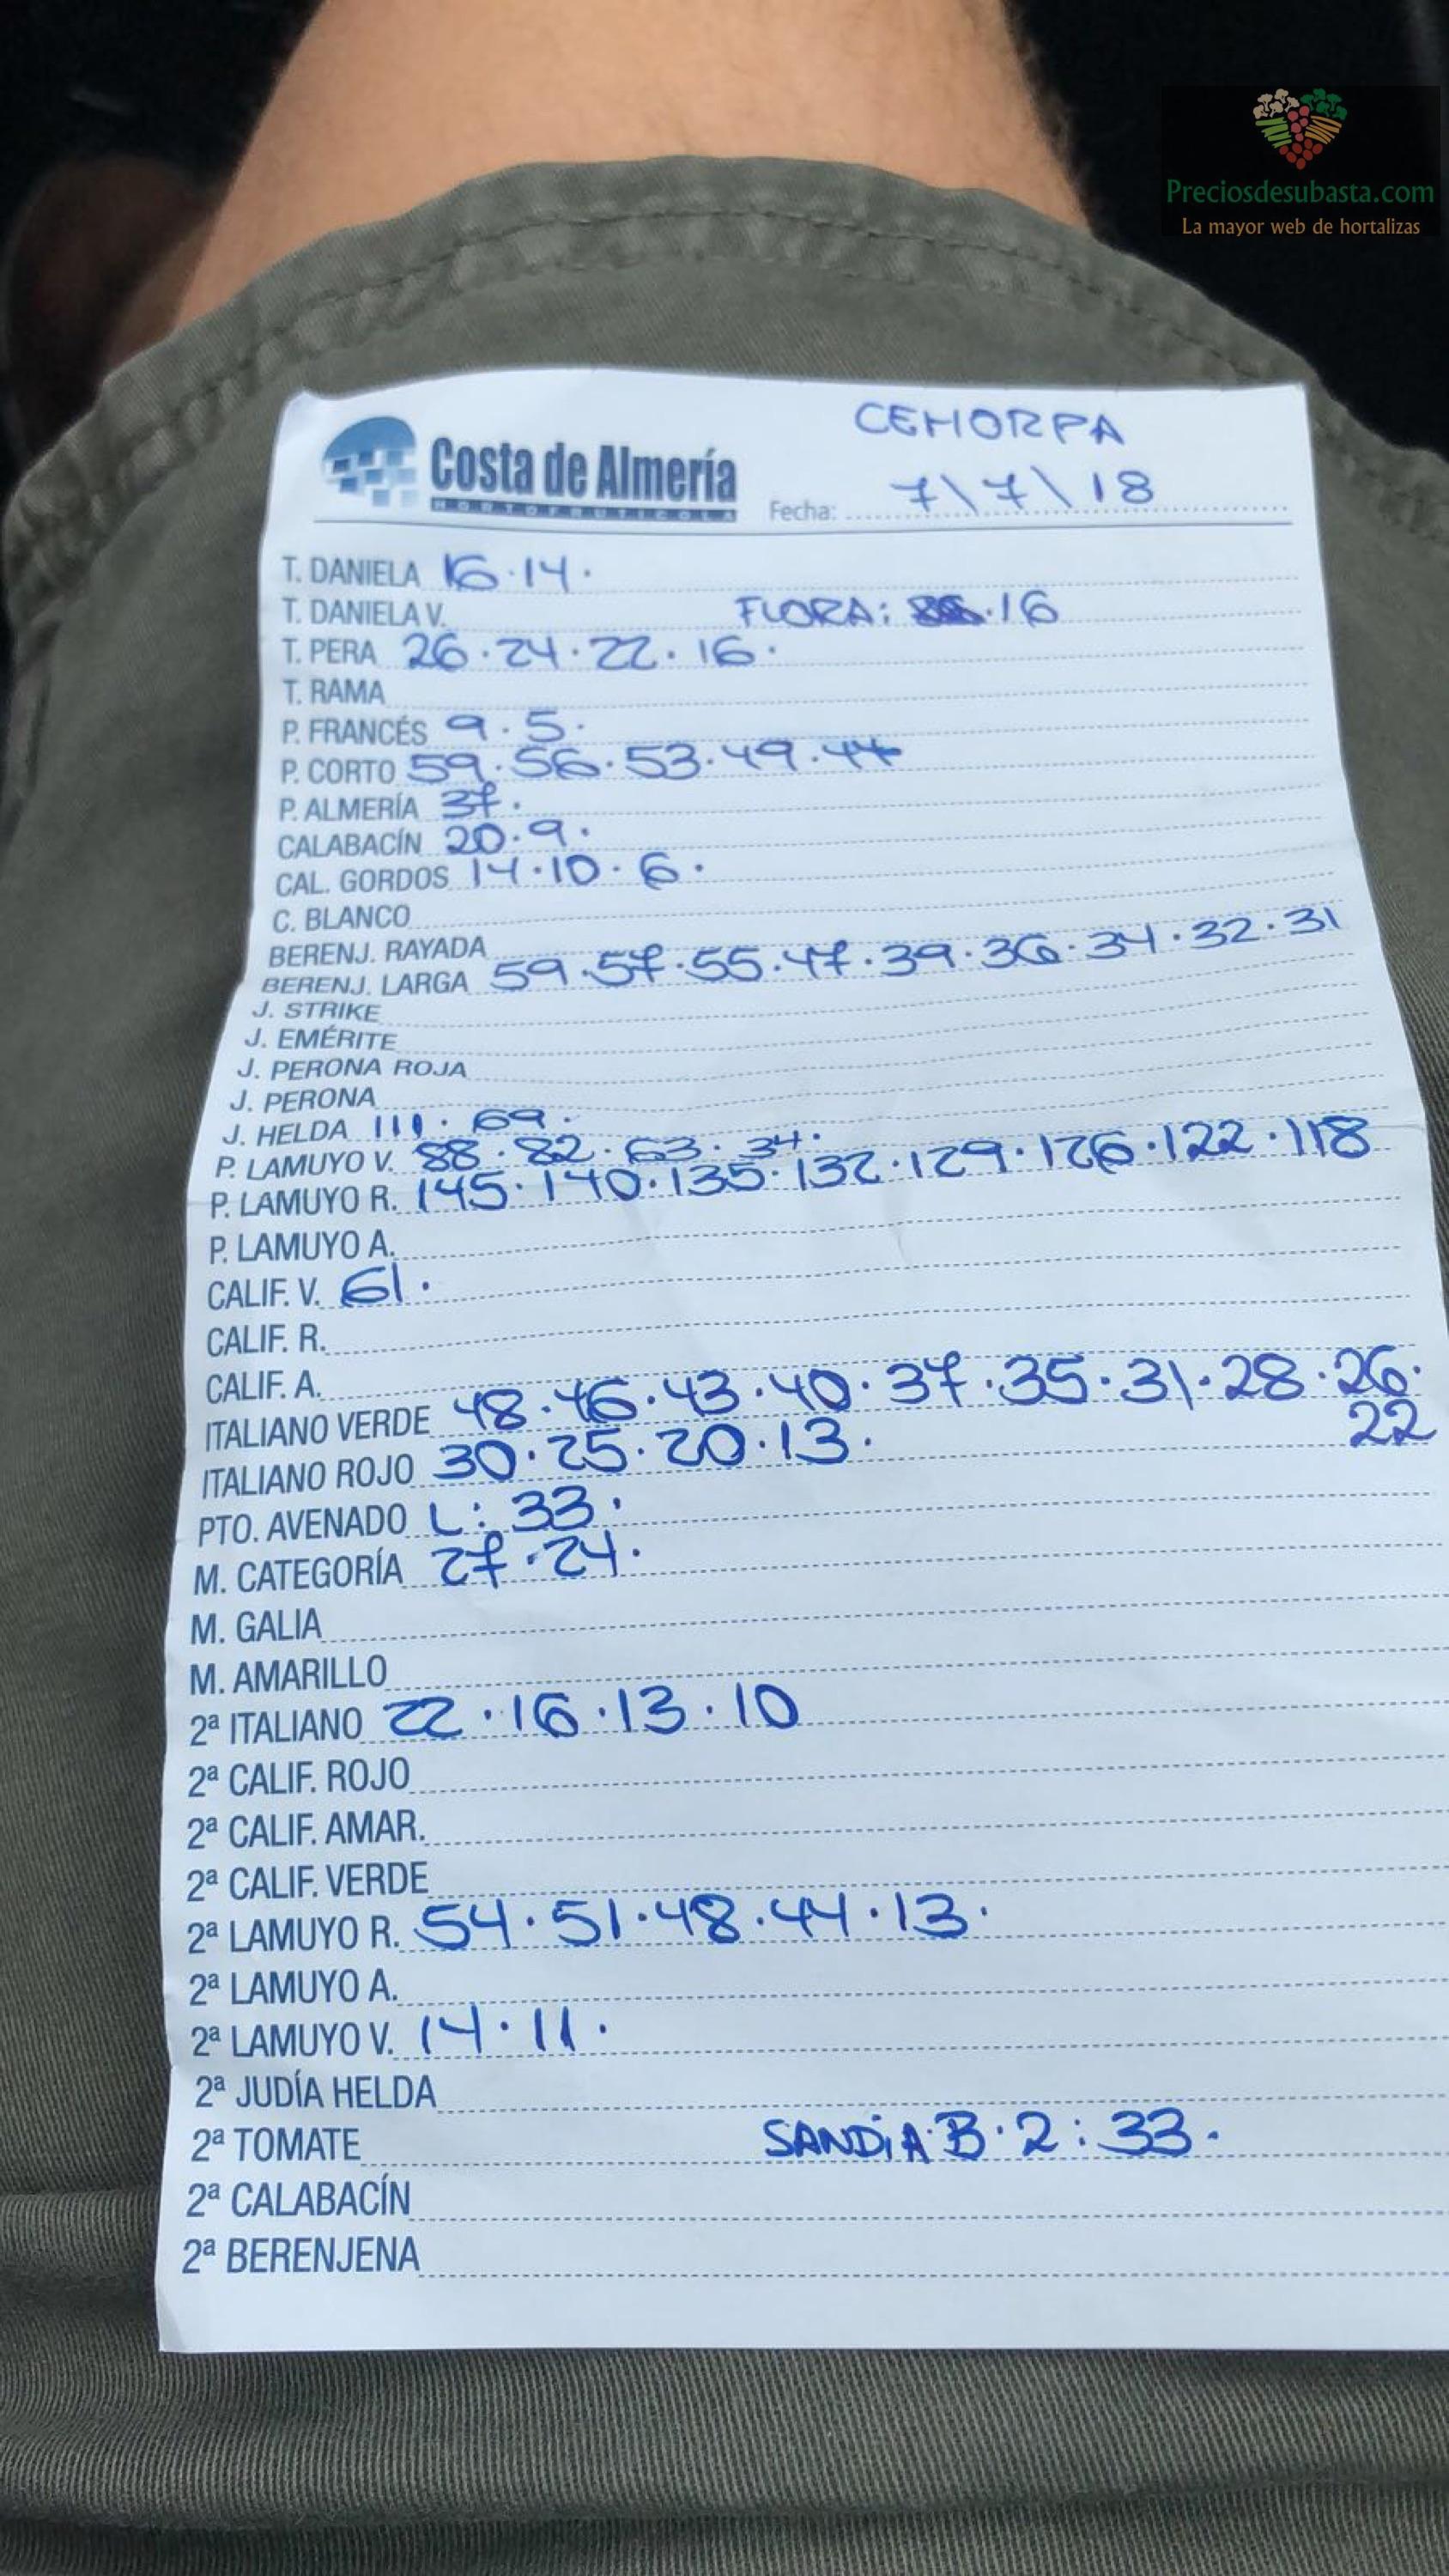 Preciosdesubasta.com
La mayor web de hortalizas
CEHORPA
Costa de Almería
HORTOFRUTICOLA
Fecha: 7\7\18
T. DANIELA 16·14·
T. DANIELA V. FLORA: 16
T. PERA 26·24·22·16·
T. RAMA
P. FRANCÉS 9·5·
P. CORTO 59·56·53·49·44
P. ALMERÍA 37·
CALABACÍN 20·9·
CAL. GORDOS 14·10·6·
C. BLANCO
BERENJ. RAYADA
BERENJ. LARGA 59·57·55·47·39·36·34·32·31
J. STRIKE
J. EMÉRITE
J. PERONA ROJA
J. PERONA
J. HELDA 111·69·
P. LAMUYO V. 88·82·63·34·
P. LAMUYO R. 145·140·135·132·129·126·122·118
P. LAMUYO A.
CALIF. V. 61·
CALIF. R.
CALIF. A.
ITALIANO VERDE 48·46·43·40·37·35·31·28·26·
22
ITALIANO ROJO 30·25·20·13·
PTO. AVENADO L: 33·
M. CATEGORÍA 27·24·
M. GALIA
M. AMARILLO
2ª ITALIANO 22·16·13·10
2ª CALIF. ROJO
2ª CALIF. AMAR.
2ª CALIF. VERDE
2ª LAMUYO R. 54·51·48·44·13·
2ª LAMUYO A.
2ª LAMUYO V. 14·11·
2ª JUDÍA HELDA
2ª TOMATE SANDiA·B·2: 33·
2ª CALABACÍN
2ª BERENJENA